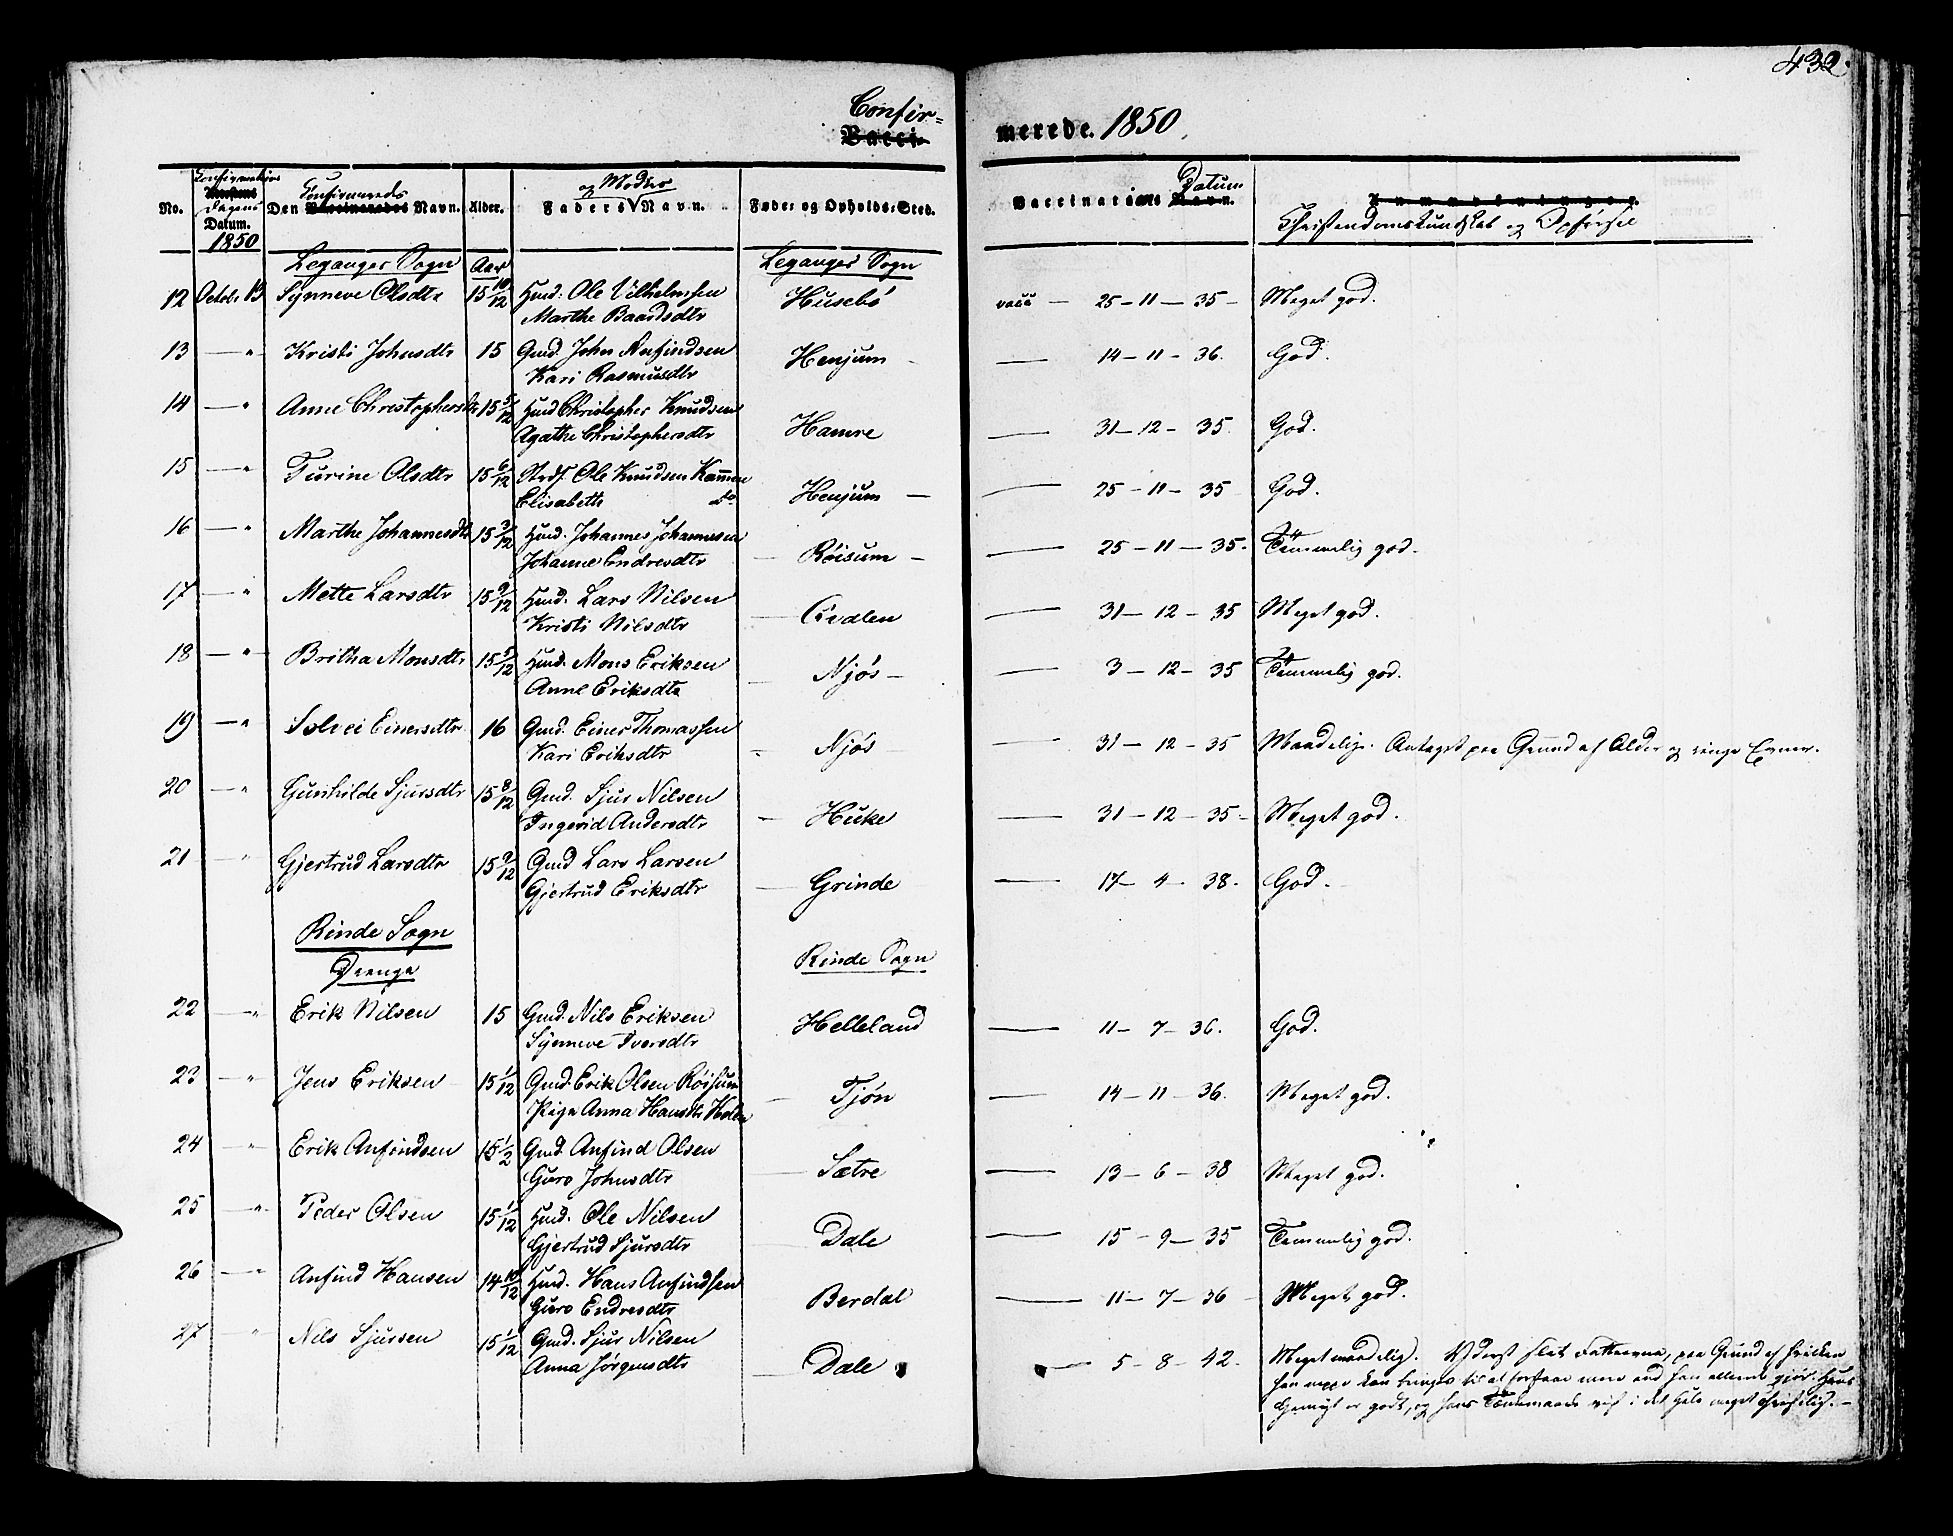 432.
Confir=
Vacci- merede. 1850.
No. Confirmations Dagens Datum. 1850 Den Confirmeredes Vaccineredes Navn. Alder. Faders og Modres Navn. Føde- og Opholds-Sted. Vaccinations Datum Navn. Anmærkninger.
Christendomskundskab og Opførsel
Leganger Sogn Aar Leganger Sogn
12 Octob. 13 Synneve Olsdtr 15 10/12 Huusd. Ole Vilhelmsen Husebö vacc — 25 - 11 - 35 - Meget god.
Marthe Baardsdtr
13 — " Kristi Johnsdtr 15 Gmd. John Anfindsen Henjum — 14 - 11 - 36. God.
Kari Rasmusdtr
14 — " Anne Christophersdtr 15 5/12 Christopher Knudsen Hamre — 31 - 12 - 35. God.
Agathe Christophersdtr
15 — " Turine Olsdtr 15 6/12 Ole Knudsen Henjum — 25 - 11 - 35 God.
Elisabeth do
16 — " Marthe Johannesdtr 15 3/12 Huusd. Johannes Johannesen Röisum — 25 - 11 - 35. Temmelig god.
Johanne Endresdtr
17 — " Mette Larsdtr 15 9/12 Huusd. Lars Nilsen — 31 - 12 - 35 Meget god.
Kristi Nilsdtr
18 — " Britha Monsdtr 15 5/12 Huusd. Mons Eriksen Njös — 3 - 12 - 35 Temmelig god.
Anne Eriksdtr
19 — " Solvei Einersdtr 16 Gmd. Einer Thomassen Njös — 31 - 12 - 35 Maadelig. Antaget paa Grund af Alder og ringe Evner.
Kari Eriksdtr
20 — " Gunhilde Sjursdtr 15 8/12 Gmd. Sjur Nilsen Huke — 31 - 12 - 35 - Meget god.
Ingerid Andersdtr
21 — " Gjertrud Larsdtr 15 9/12 Gmd Lars Larsen Grinde — 17 - 4 - 38. God.
Gjertrud Eriksdtr
Rinde Sogn
Drenge Rinde Sogn
22 — " Erik Nilsen 15 Gmd. Nils Eriksen Helleland — 11 - 7 - 36. God.
Synneve Iversdtr
23 — " Jens Eriksen 15 1/12 Gmd. Erik Olsen Röisum Tjön — 14 - 11 - 36. Meget god.
Pige Anna Hansdtr
24 — " Erik Anfindsen 15 1/2 Gmd. Anfind Olsen Sætre — 13 - 6 - 38 Meget god.
Guro Johnsdtr
25 — " Peder Olsen 15 1/12 Huusd. Ole Nilsen Dale — 15 - 9 - 35 Temmelig god.
Gjertrud Sjursdtr
26 — " Anfind Hansen 14 10/12 Huusd. Hans Anfindsen Berdal — 11 - 7 - 36 Meget god.
Guro Endresdtr
27 — " Nils Sjursen 15 1/12 Gmd. Sjur Nilsen Dale — 5 - 8 - 42. Meget maadelig. Yderst slet Fatteevne, paa Grund af hvilken
Anna Jörgensdtr han neppe kan bringes til at forstaae mere end han allerede gjör. Hans
Gemyt er godt, og hans i det Hele meget